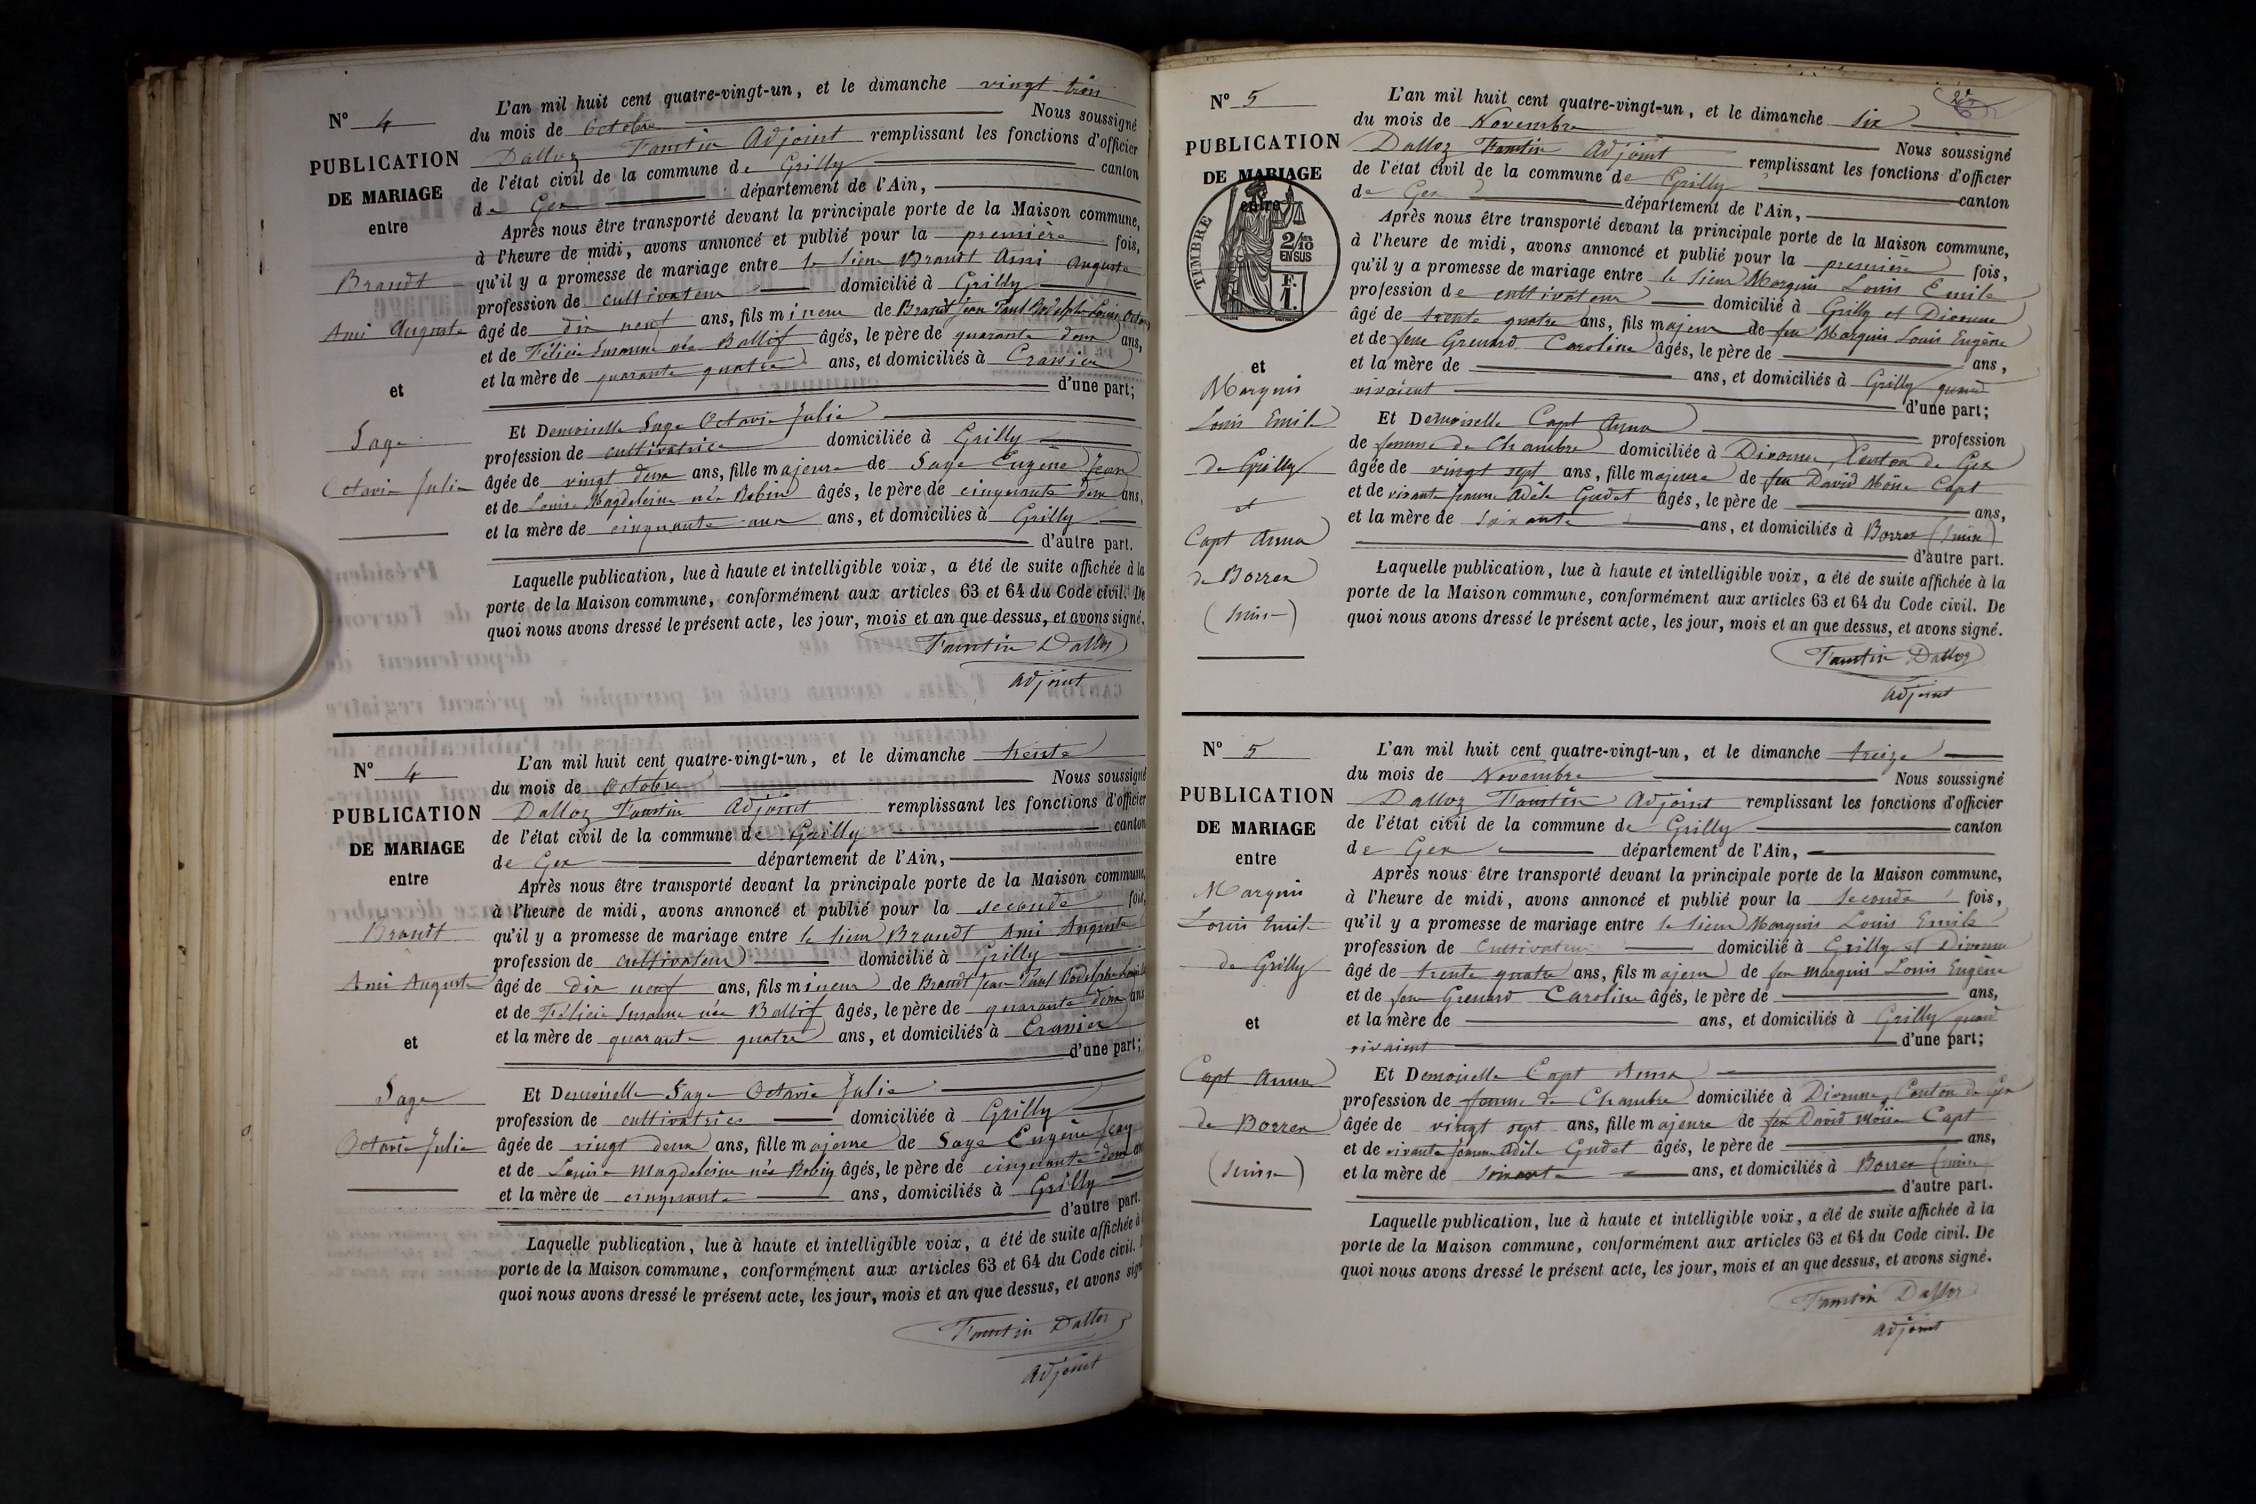 N° 4
PUBLICATION
DE MARIAGE
entre
Brandt
Ami Auguste
et
Sage
Octavie Julie
L'an mil huit cent quatre-vingt-un, et le dimanche vingt trois
du mois de Octobre Nous soussigné
Dalloz Faustin Adjoint remplissant les fonctions d'officier
de l'état civil de la commune de Grilly canton
de Gex département de l'Ain,
Après nous être transporté devant la principale porte de la Maison commune,
à l'heure de midi, avons annoncé et publié pour la première fois,
qu'il y a promesse de mariage entre le sieur Brandt Ami Auguste
profession de cultivateur domicilié à Grilly
âgé de dix neuf ans, fils mineur de Brandt Jean Paul Rodolphe Louis
et de Félicie Susanne née Ballif âgés, le père de quarante deux ans,
et la mère de quarante quatre ans, et domiciliés à Crassier
d'une part;
Et Demoiselle Sage Octavie Julie
profession de cultivatrice domiciliée à Grilly
âgée de vingt deux ans, fille majeure de Sage Eugène Jean
et de Louise Magdeleine née Robin âgés, le père de cinquante deux ans,
et la mère de cinquante ans, et domiciliés à Grilly
d'autre part.
Laquelle publication, lue à haute et intelligible voix, a été de suite affichée à la
porte de la Maison commune, conformément aux articles 63 et 64 du Code civil. De
quoi nous avons dressé le présent acte, les jour, mois et an que dessus, et avons signé.
Faustin Dalloz
adjoint
N° 4
PUBLICATION
DE MARIAGE
entre
Brandt
Ami Auguste
et
Sage
Octavie Julie
L'an mil huit cent quatre-vingt-un, et le dimanche trente
du mois de Octobre Nous soussigné
Dalloz Faustin Adjoint remplissant les fonctions d'officier
de l'état civil de la commune de Grilly canton
de Gex département de l'Ain,
Après nous être transporté devant la principale porte de la Maison commune,
à l'heure de midi, avons annoncé et publié pour la seconde fois,
qu'il y a promesse de mariage entre le sieur Brandt Ami Auguste
profession de cultivateur domicilié à Grilly
âgé de dix neuf ans, fils mineur de Brandt Jean Paul Rodolphe
et de Félicie Susanne née Ballif âgés, le père de quarante deux ans
et la mère de quarante quatre ans, et domiciliés à Crassier
d'une part;
Et Demoiselle Sage Octavie Julie
profession de cultivatrice domiciliée à Grilly
âgée de vingt deux ans, fille majeure de Sage Eugène Jean
et de Louise Magdeleine née Robin âgés, le père de cinquante deux ans
et la mère de cinquante ans, domiciliés à Grilly
d'autre part.
Laquelle publication, lue à haute et intelligible voix, a été de suite affichée à
porte de la Maison commune, conformément aux articles 63 et 64 du Code civil.
quoi nous avons dressé le présent acte, les jour, mois et an que dessus, et avons signé
Faustin Dalloz
adjoint
2e
N° 5
PUBLICATION
DE MARIAGE
entre
TIMBRE
2/10
EN SUS
F.
1.
et
Marquis
Louis Emile
de Grilly
et
Capt Anna
de Borrex
(Suisse)
L'an mil huit cent quatre-vingt-un, et le dimanche Six
du mois de Novembre Nous soussigné
Dalloz Faustin Adjoint remplissant les fonctions d'officier
de l'état civil de la commune de Grilly canton
de Gex département de l'Ain,
Après nous être transporté devant la principale porte de la Maison commune,
à l'heure de midi, avons annoncé et publié pour la première fois,
qu'il y a promesse de mariage entre le sieur Marquis Louis Emile
profession de cultivateur domicilié à Grilly et Divonne
âgé de trente quatre ans, fils majeur de feu Marquis Louis Eugène
et de feue Grenard Caroline âgés, le père de ans,
et la mère de ans, et domiciliés à Grilly quand
vivaient d'une part;
Et Demoiselle Capt Anna profession
de femme de Chambre domiciliée à Divonne, Canton de Gex
âgée de vingt sept ans, fille majeure de feu David Moïse Capt
et de vivante Jeanne Adèle Gudet âgés, le père de ans,
et la mère de soixante ans, et domiciliés à Borrex (Suisse)
d'autre part.
Laquelle publication, lue à haute et intelligible voix, a été de suite affichée à la
porte de la Maison commune, conformément aux articles 63 et 64 du Code civil. De
quoi nous avons dressé le présent acte, les jour, mois et an que dessus, et avons signé.
Faustin Dalloz
adjoint
N° 5
PUBLICATION
DE MARIAGE
entre
Marquis
Louis Emile
de Grilly
et
Capt Anna
de Borrex
(Suisse)
L'an mil huit cent quatre-vingt-un, et le dimanche treize
du mois de Novembre Nous soussigné
Dalloz Faustin Adjoint remplissant les fonctions d'officier
de l'état civil de la commune de Grilly canton
de Gex département de l'Ain,
Après nous être transporté devant la principale porte de la Maison commune,
à l'heure de midi, avons annoncé et publié pour la seconde fois,
qu'il y a promesse de mariage entre le sieur Marquis Louis Emile
profession de Cultivateur domicilié à Grilly et Divonne
âgé de trente quatre ans, fils majeur de feu marquis Louis Eugène
et de feue Grenard Caroline âgés, le père de ans,
et la mère de ans, et domiciliés à Grilly quand
vivaient d'une part;
Et Demoiselle Capt Anna
profession de femme de Chambre domiciliée à Divonne, Canton de Gex
âgée de vingt sept ans, fille majeure de feu David Moïse Capt
et de vivante Jeanne Adèle Gudet âgés, le père de ans,
et la mère de soixante ans, et domiciliés à Borrex (Suisse
d'autre part.
Laquelle publication, lue à haute et intelligible voix, a été de suite affichée à la
porte de la Maison commune, conformément aux articles 63 et 64 du Code civil. De
quoi nous avons dressé le présent acte, les jour, mois et an que dessus, et avons signé.
Faustin Dalloz
adjoint